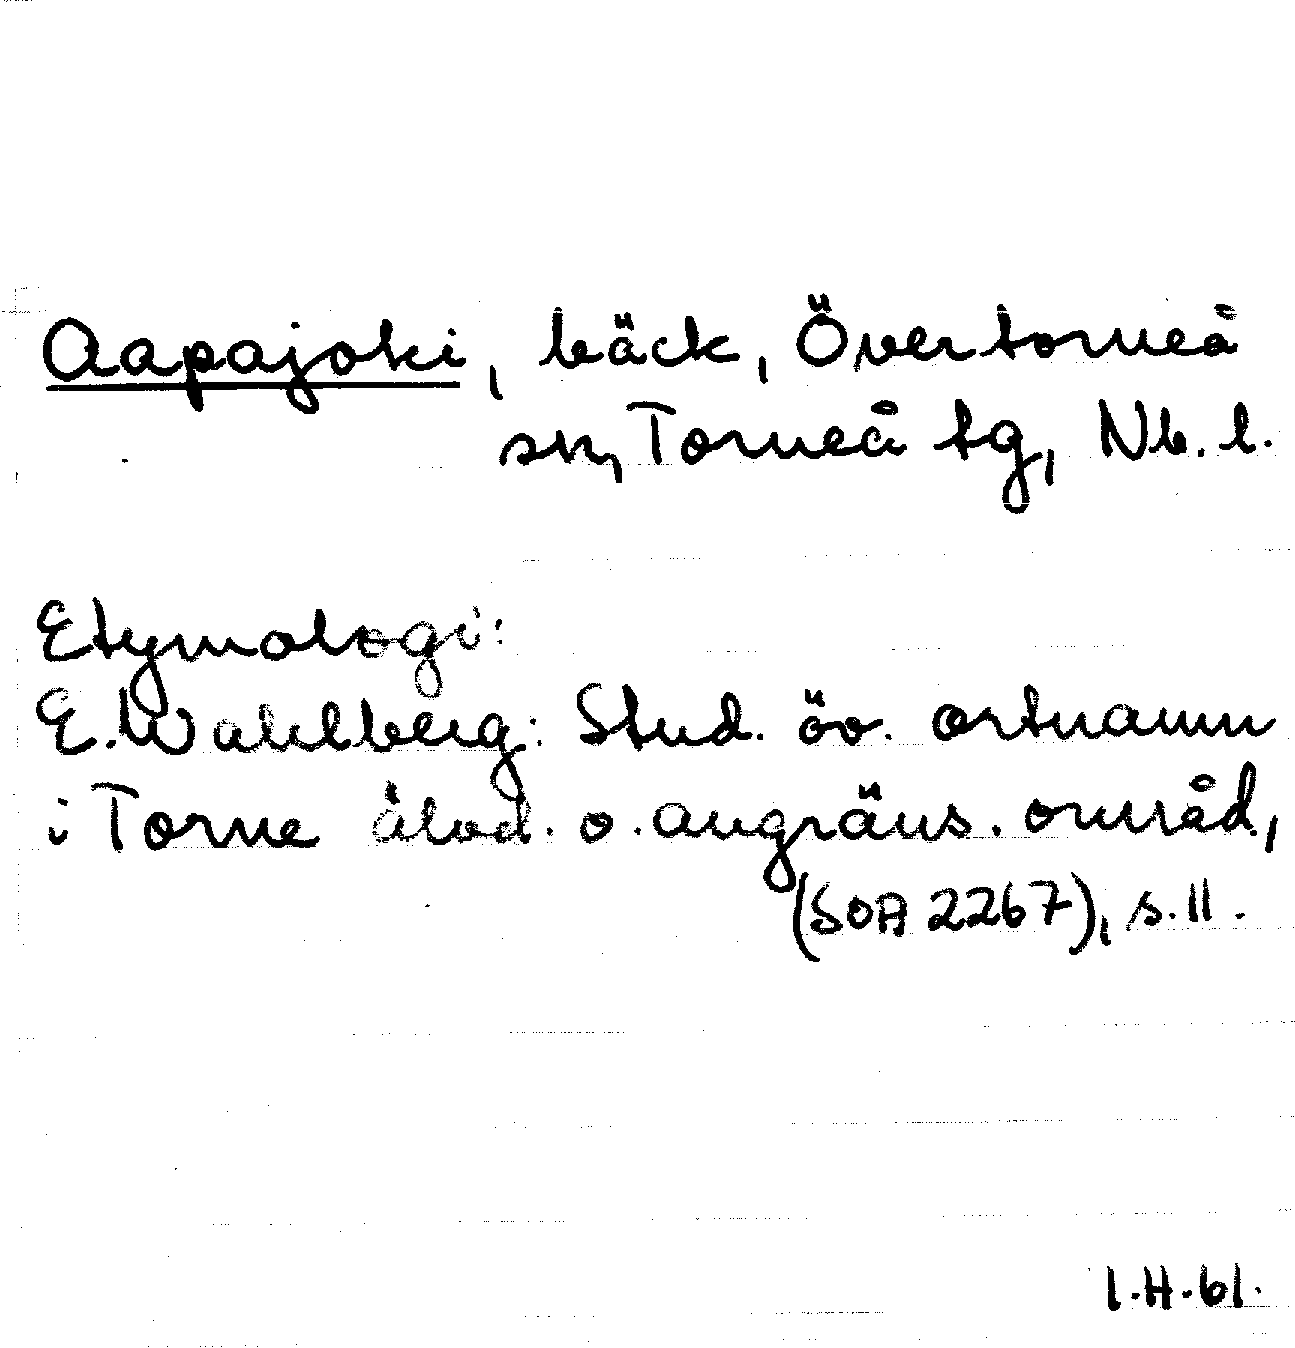 Aapajoki, bäck, Övertorneå
sn, Torneå tg, Nb. l.
Etymologi:
E. Wahlberg: Stud. öv. ortnamn
i Torne älvd. o. angräns. områd,
(SOA 2267), s. 11.
I.H.61.